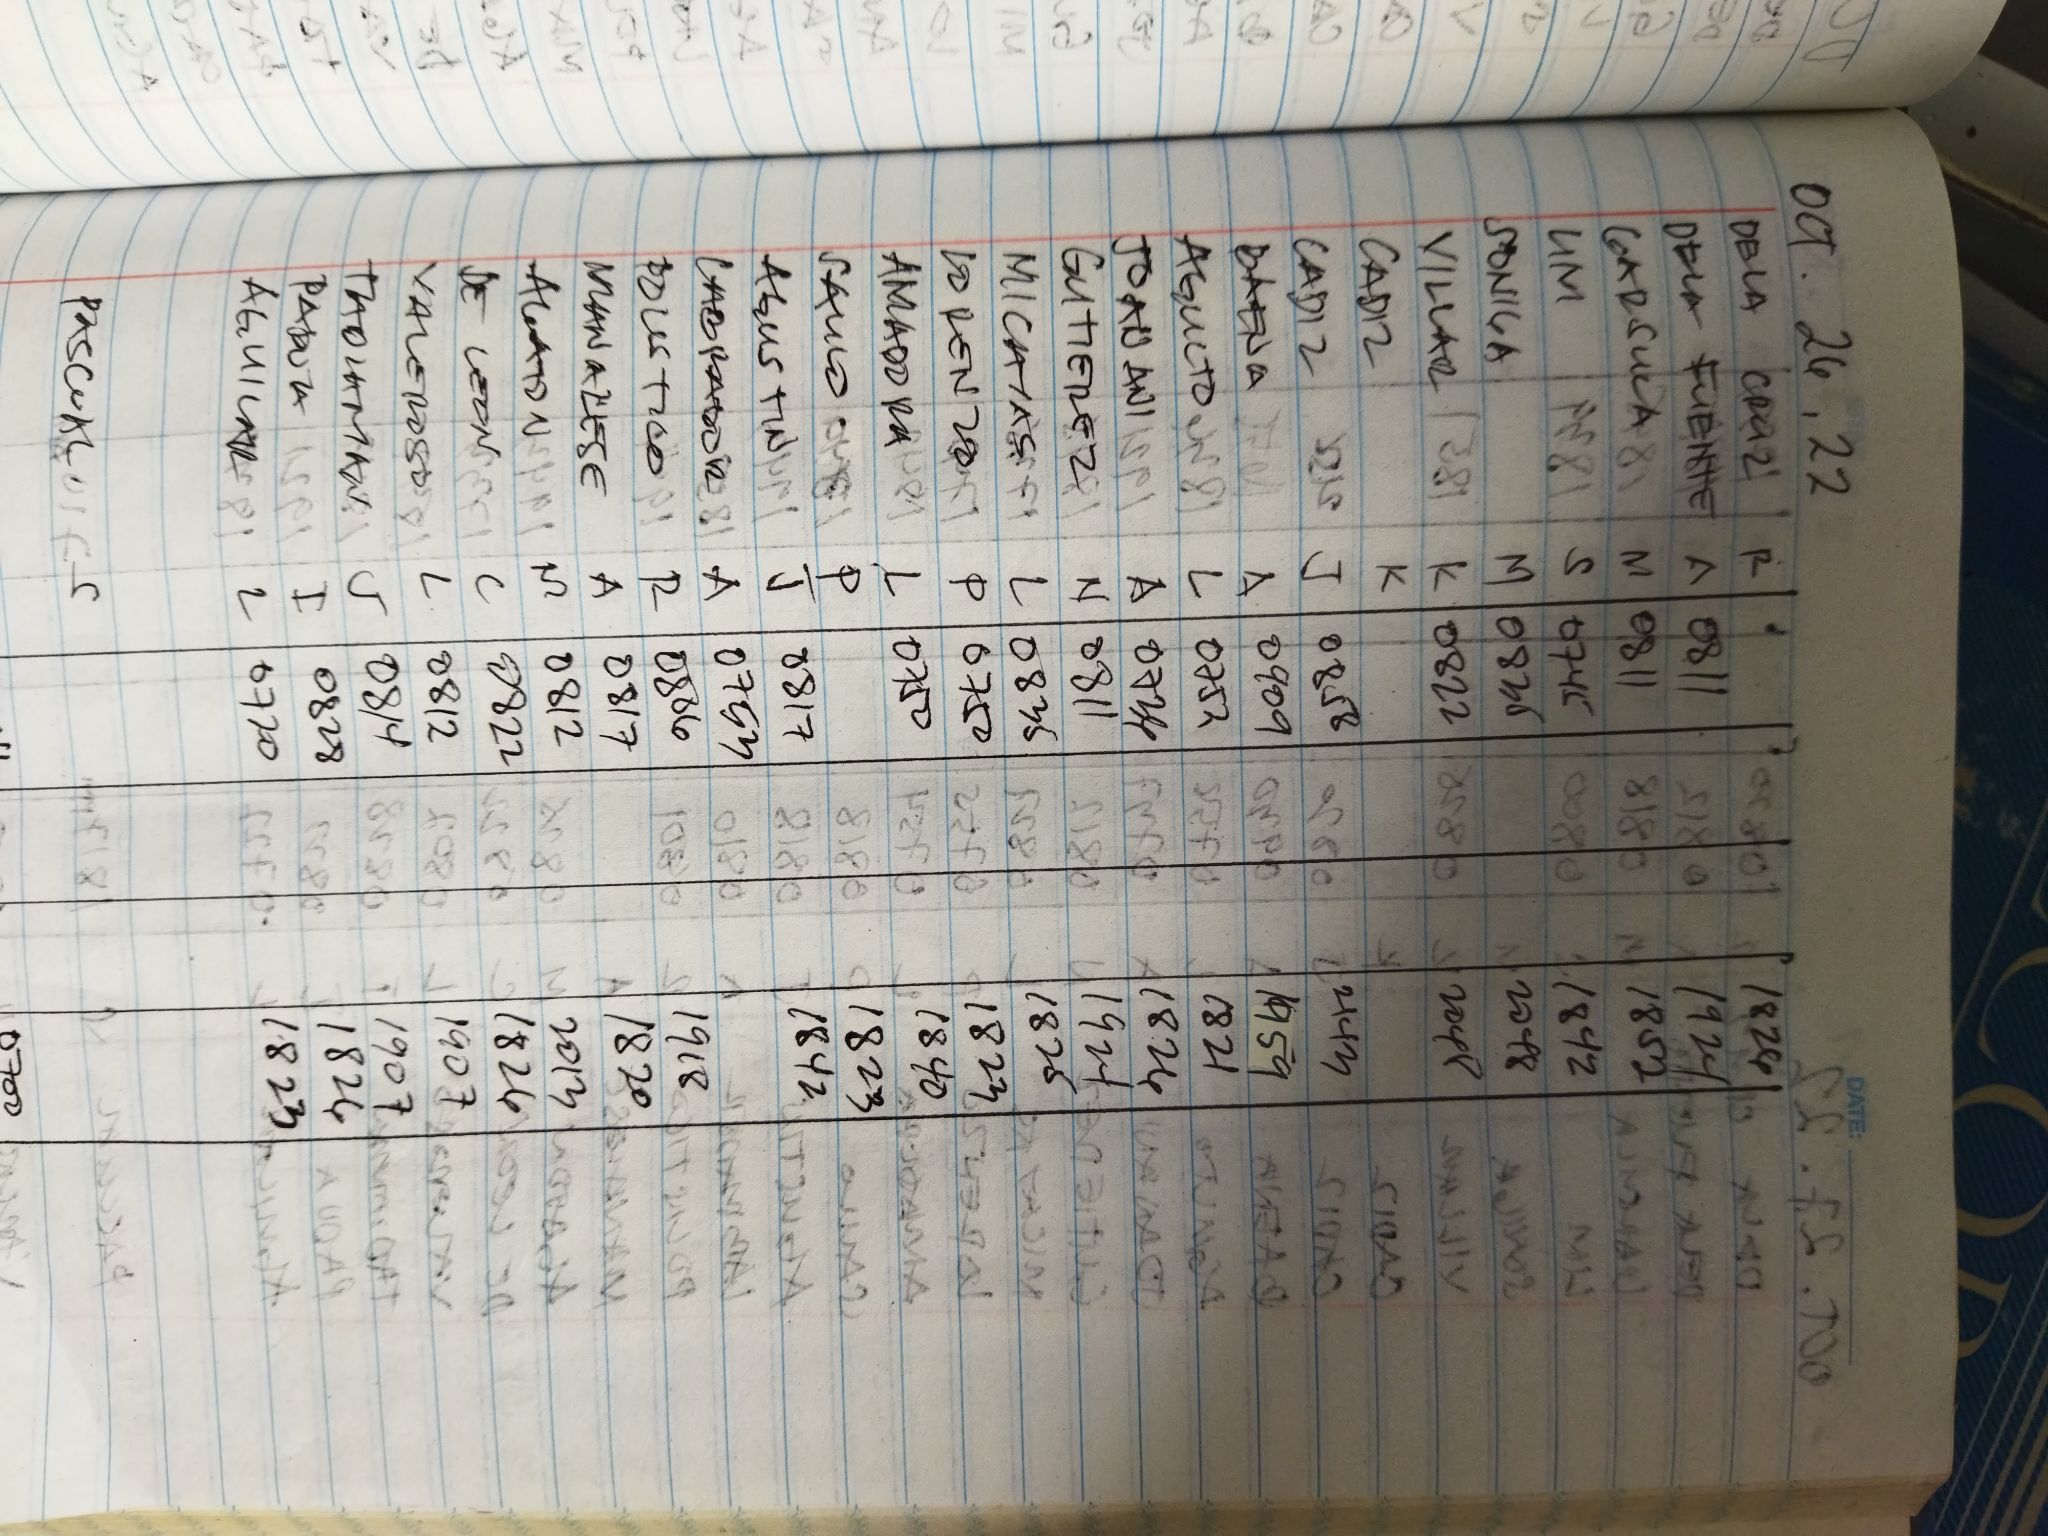 OCT. 26, 22
DATE:
DELA CRUZ R 1826
DELA FUENTE A 0811 1924
GARSULA M 0811 1852
LIM S 0745 1842
SONIGA M 0836
VILLAR K 0822
CADIZ K
CADIZ J 0858
BAENA A 0909 1959
AGULTO L 0752 1821
JOANINI A 0736 1826
GUTIEREZ N 0811 1924
MICAYAS L 0836 1826
LORENZO P 0750 1823
AMADORA L 0750 1840
SAULO P 1823
AGUSTIN J 0817 1842
LABRADOR A 0753
BOLUSTZO R 1918
MANAZESE A 0817 1820
ALGADON M 0812 2013
DE LEON C 0822 1826
VALEROSO L 0812 1907
J 0814 1907
PADUA I 0828 1826
AGUILAR L 0720 1823
PASCUAL S
0700